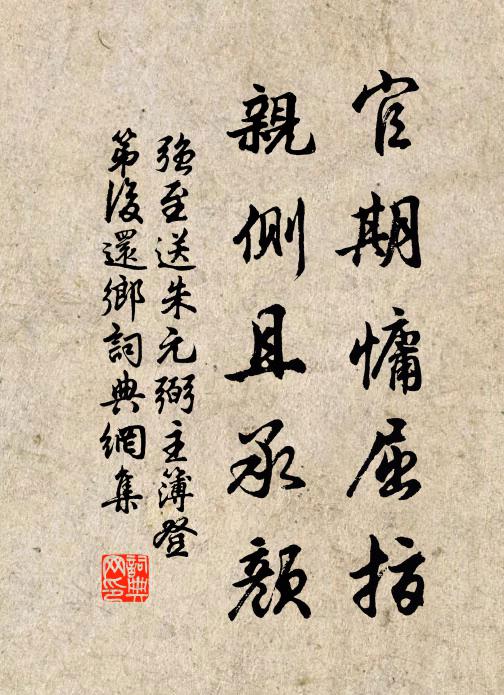 官期慵屈指
親側且承顏
強至送朱元弼主簿登
第後還鄉詞典網集
詞典
网印